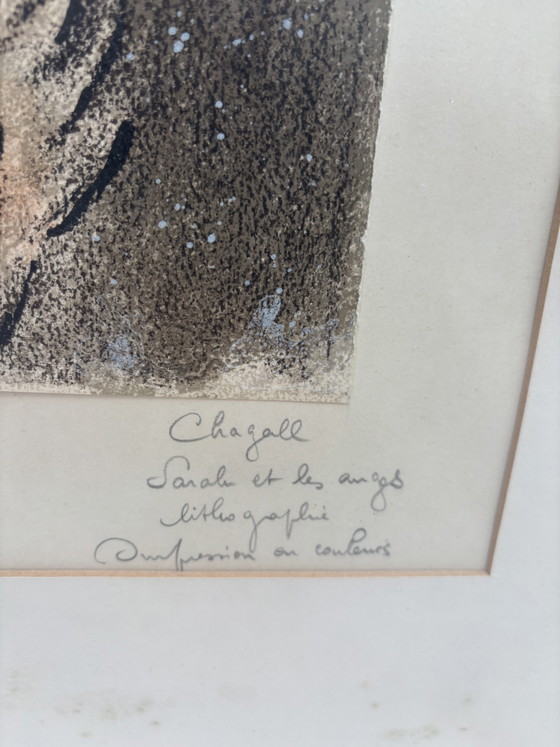 Chagall
Sarah et les anges
lithographie
Impression en couleurs